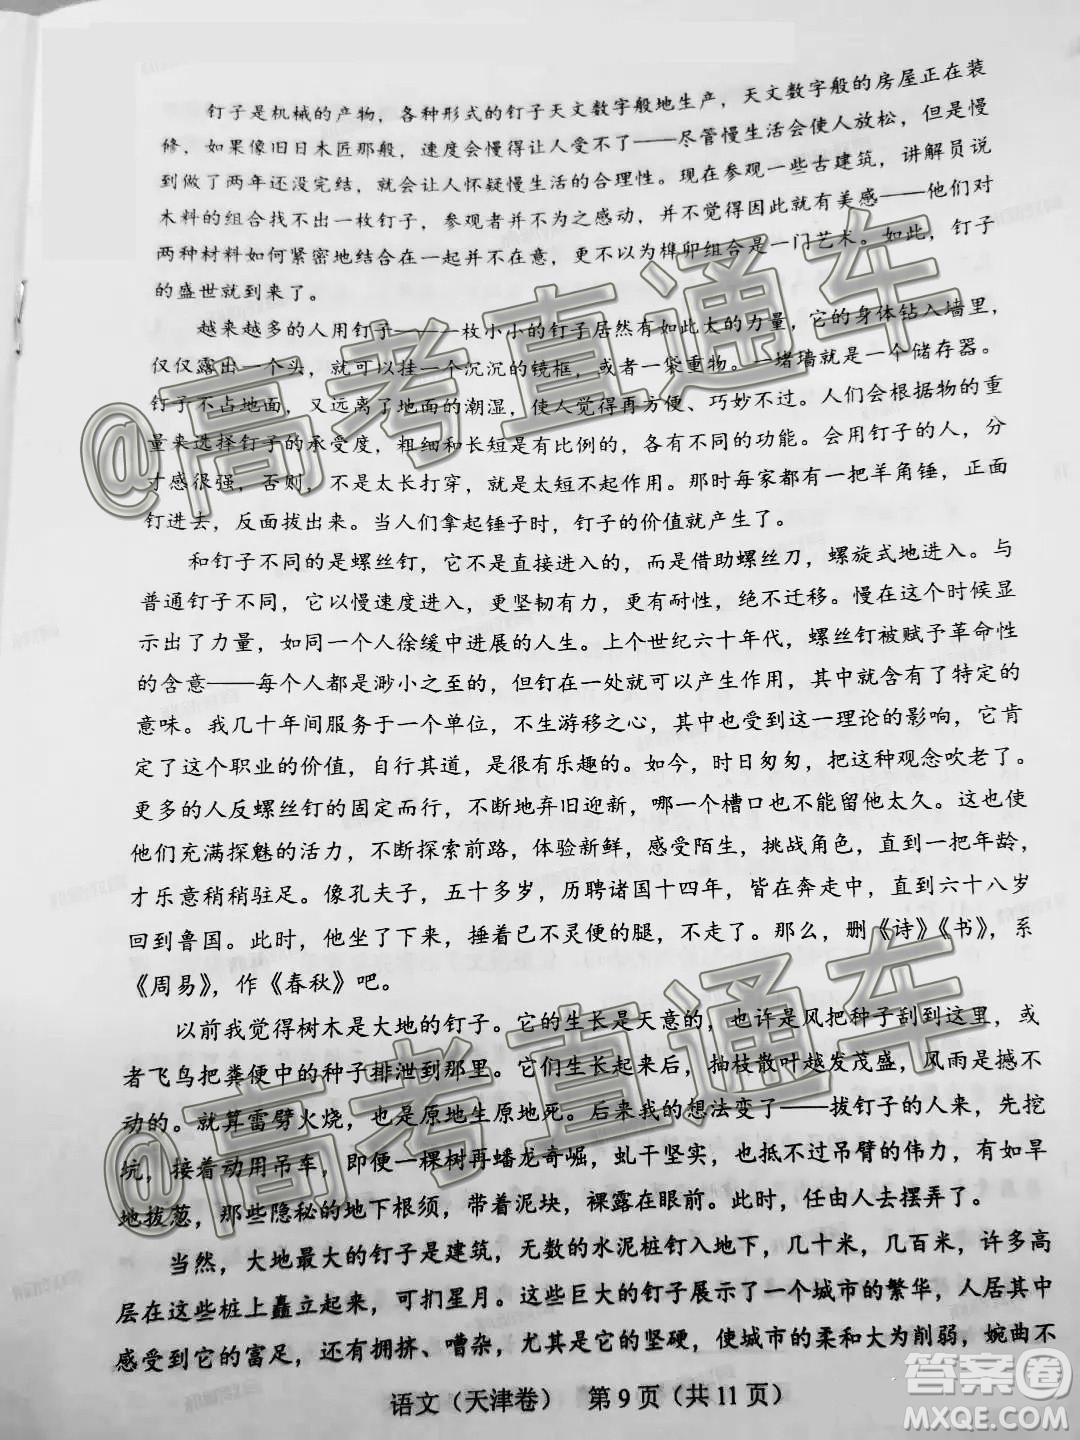 钉子是机械的产物，各种形式的钉子天文数字般地生产，天文数字般的房屋正在装
修，如果像旧日木匠那般，速度会慢得让人受不了——尽管慢生活会使人放松，但是慢
到做了两年还没完结，就会让人怀疑慢生活的合理性。现在参观一些古建筑，讲解员说
木料的组合找不出一枚钉子，参观者并不为之感动，并不觉得因此就有美感——他们对
两种材料如何紧密地结合在一起并不在意，更不以为榫卯组合是一门艺术。如此，钉子
的盛世就到来了。
越来越多的人用钉子——一枚小小的钉子居然有如此大的力量，它的身体钻入墙里，
仅仅露出一个头，就可以挂一个沉沉的镜框，或者一袋重物。一堵墙就是一个储存器。
钉子不占地面，又远离了地面的潮湿，使人觉得再方便、巧妙不过。人们会根据物的重
量来选择钉子的承受度，粗细和长短是有比例的，各有不同的功能。会用钉子的人，分
寸感很强，否则，不是太长打穿，就是太短不起作用。那时每家都有一把羊角锤，正面
钉进去，反面拔出来。当人们拿起锤子时，钉子的价值就产生了。
和钉子不同的是螺丝钉，它不是直接进入的，而是借助螺丝刀，螺旋式地进入。与
普通钉子不同，它以慢速度进入，更坚韧有力，更有耐性，绝不迁移。慢在这个时候显
示出了力量，如同一个人徐缓中进展的人生。上个世纪六十年代，螺丝钉被赋予革命性
的含意——每个人都是渺小之至的，但钉在一处就可以产生作用，其中就含有了特定的
意味。我几十年间服务于一个单位，不生游移之心，其中也受到这一理论的影响，它肯
定了这个职业的价值，自行其道，是很有乐趣的。如今，时日匆匆，把这种观念吹老了。
更多的人反螺丝钉的固定而行，不断地弃旧迎新，哪一个槽口也不能留他太久。这也使
他们充满探魅的活力，不断探索前路，体验新鲜，感受陌生，挑战角色，直到一把年龄，
才乐意稍稍驻足。像孔夫子，五十多岁，历聘诸国十四年，皆在奔走中，直到六十八岁
回到鲁国。此时，他坐了下来，捶着已不灵便的腿，不走了。那么，删《诗》《书》，系
《周易》，作《春秋》吧。
以前我觉得树木是大地的钉子。它的生长是天意的，也许是风把种子刮到这里，或
者飞鸟把粪便中的种子排泄到那里。它们生长起来后，抽枝散叶越发茂盛，风雨是撼不
动的。就算雷劈火烧，也是原地生原地死。后来我的想法变了——拔钉子的人来，先挖
坑，接着动用吊车，即便一棵树再蟠龙奇崛，虬干坚实，也抵不过吊臂的伟力，有如旱
地拔葱，那些隐秘的地下根须，带着泥块，裸露在眼前。此时，任由人去摆弄了。
当然，大地最大的钉子是建筑，无数的水泥桩钉入地下，几十米，几百米，许多高
层在这些桩上矗立起来，可扪星月。这些巨大的钉子展示了一个城市的繁华，人居其中
感受到它的富足，还有拥挤、嘈杂，尤其是它的坚硬，使城市的柔和大为削弱，婉曲不
语文（天津卷） 第9页（共11页）
@高考直通车
@高考直通车
答案圈
MXQE.COM